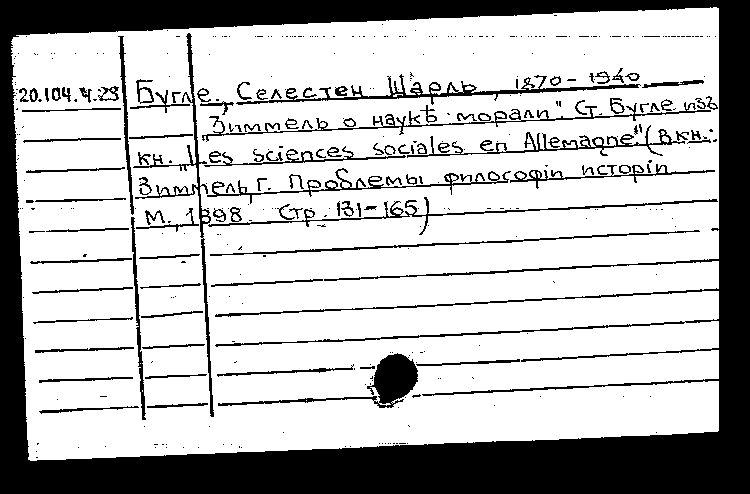 20.104.4.23 Бугле, Селестен Шарль, 1870-1940
„Зиммель о наукѣ морали". Ст. Бугле изъ
кн. „Les sciences sociales en Allemagne" (В кн.:
Зиммель, Г. Проблемы философіи исторіи
М., 1898. Стр. 131-165)